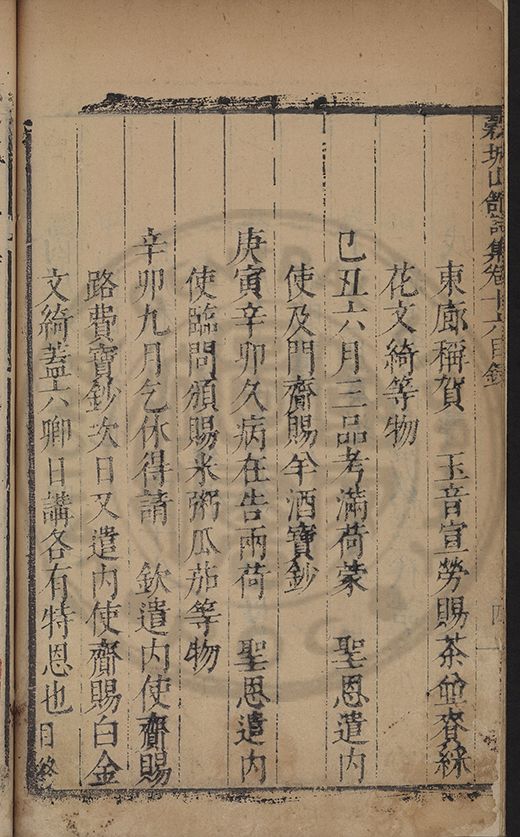 穀城山館詩集卷十六目錄
東廊稱賀　玉音宣勞賜茶並賚綵
花文綺等物
己丑六月三品考滿荷蒙　聖恩遣内
使及門齎賜羊酒寶鈔
庚寅辛卯久病在告兩荷　聖恩遣内
使臨問頒賜米粥瓜茄等物
辛卯九月乞休得請　欽遣内使齎賜
路費寶鈔次日又遣内使齎賜白金
文綺蓋六卿日講各有特恩也目終